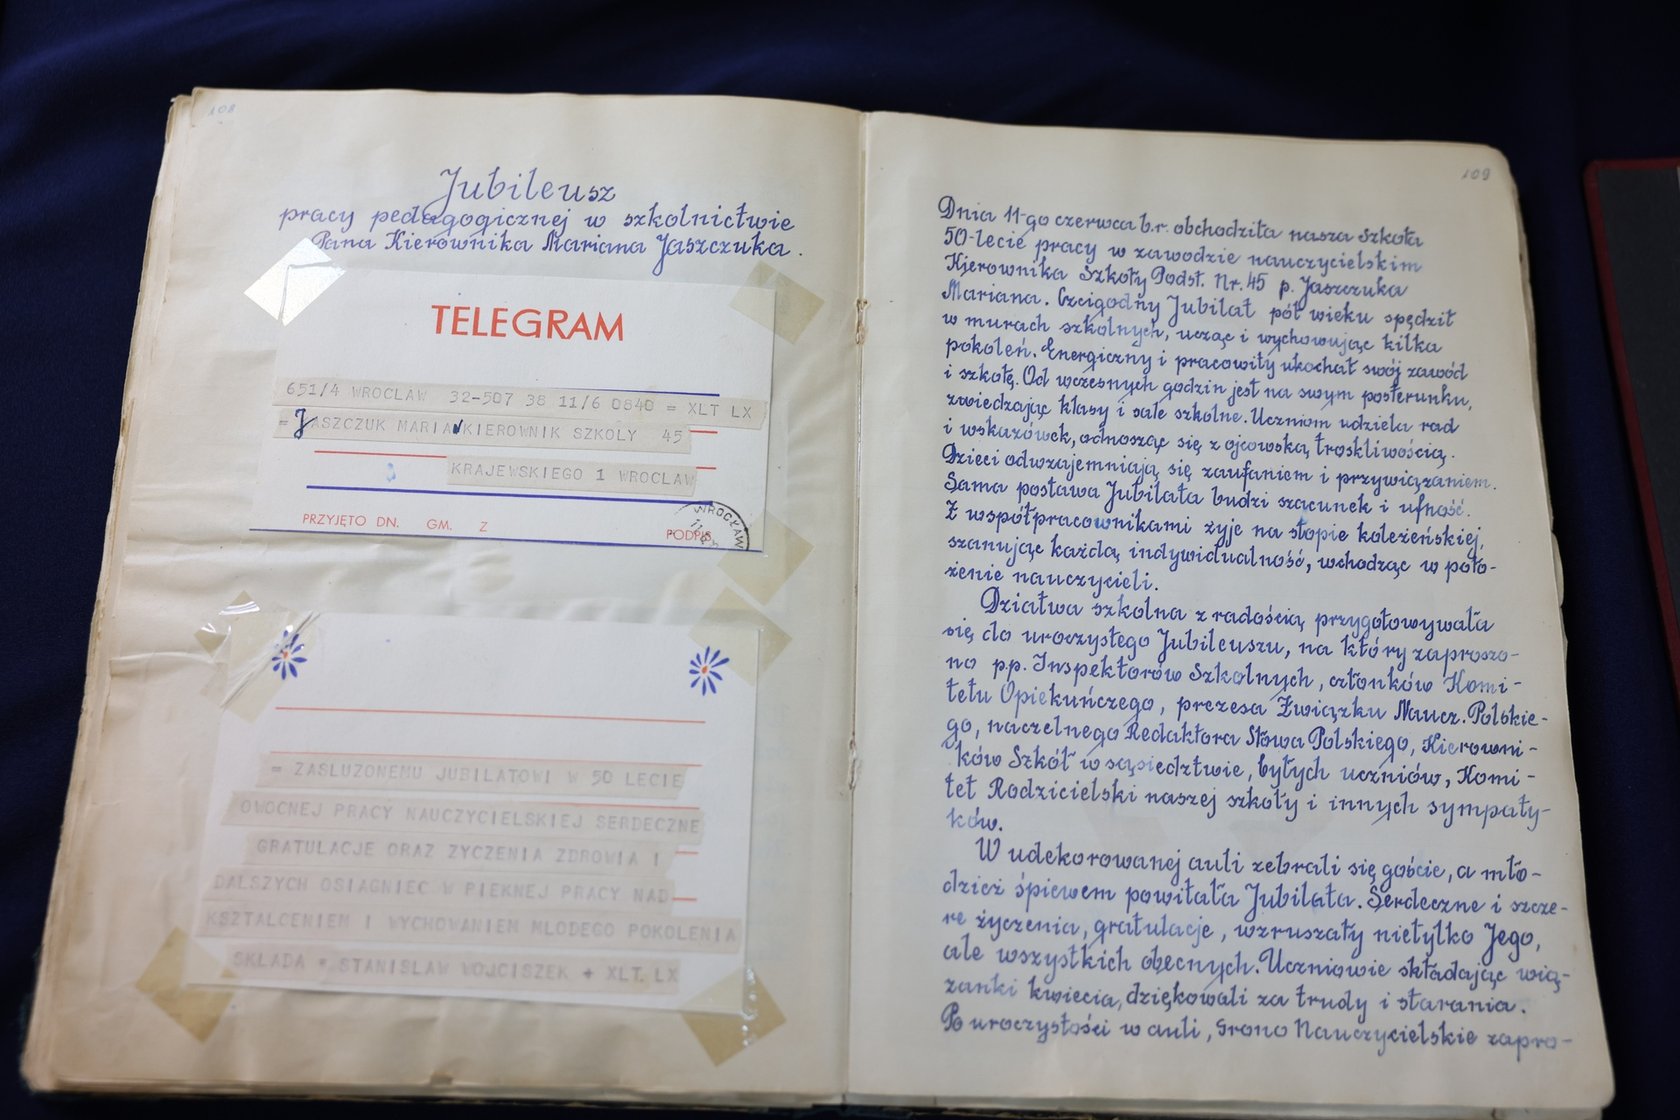 108
Jubileusz
pracy pedagogicznej w szkolnictwie
Pana Kierownika Mariana Jaszczuka.
TELEGRAM
651/4 WROCLAW 32-507 38 11/6 0840 = XLT LX
= JASZCZUK MARIAN KIEROWNIK SZKOLY 45
KRAJEWSKIEGO 1 WROCLAW
PRZYJĘTO DN. GM. Z PODPIS
WROCŁAW
= ZASLUZONEMU JUBILATOWI W 50 LECIE
OWOCNEJ PRACY NAUCZYCIELSKIEJ SERDECZNE
GRATULACJE ORAZ ZYCZENIA ZDROWIA I
DALSZYCH OSIAGNIEC W PIEKNEJ PRACY NAD
KSZTALCENIEM I WYCHOWANIEM MLODEGO POKOLENIA
SKLADA = STANISLAW WOJCISZEK + XLT LX
109
Dnia 11-go czerwca b.r. obchodziła nasza szkoła
50-lecie pracy w zawodzie nauczycielskim
Kierownika Szkoły Podst. Nr. 45 p. Jaszczuka
Mariana. Czcigodny Jubilat pół wieku spędził
w murach szkolnych, ucząc i wychowując kilka
pokoleń. Energiczny i pracowity ukochał swój zawód
i szkołę. Od wczesnych godzin jest na swym posterunku,
zwiedzając klasy i sale szkolne. Uczniom udziela rad
i wskazówek, odnosząc się z ojcowską troskliwością.
Dzieci odwzajemniają się zaufaniem i przywiązaniem.
Sama postawa Jubilata budzi szacunek i ufność.
Z współpracownikami żyje na stopie koleżeńskiej,
szanując każdą indywidualność, wchodząc w poło-
żenie nauczycieli.
Dziatwa szkolna z radością przygotowywała
się do uroczystego Jubileuszu, na który zaproszo-
no p.p. Inspektorów Szkolnych, członków Komi-
tetu Opiekuńczego, prezesa Związku Naucz. Polskie-
go, naczelnego Redaktora Słowa Polskiego, Kierowni-
ków Szkół w sąsiedztwie, byłych uczniów, Komi-
tet Rodzicielski naszej szkoły i innych sympaty-
ków.
W udekorowanej auli zebrali się goście, a mło-
dzież śpiewem powitała Jubilata. Serdeczne i szcze-
re życzenia, gratulacje, wzruszały nietylko Jego,
ale wszystkich obecnych. Uczniowie składając wią-
zanki kwiecia, dziękowali za trudy i starania.
Po uroczystości w auli, Grono Nauczycielskie zapro-